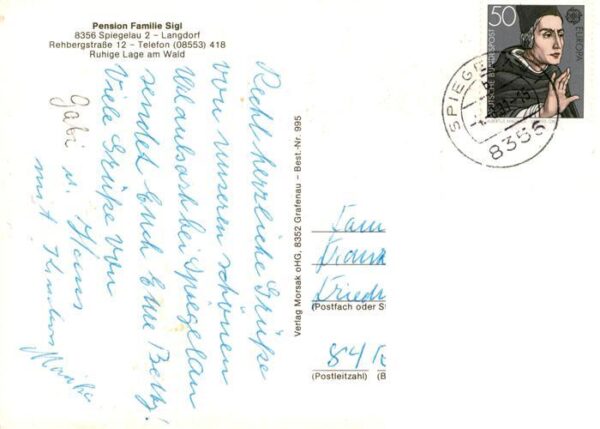 Pension Familie Sigl
8356 Spiegelau 2 – Langdorf
Rehbergstraße 12 – Telefon (08553) 418
Ruhige Lage am Wald
Recht herzliche Grüße
von unserem schönen
Urlaubsort bei Spiegelau
sendet Euch Eure Betty!
Viele Grüße von
Gabi u. Hans
mit Kindern
Verlag Morsak oHG, 8352 Grafenau – Best.-Nr. 995
50
DEUTSCHE BUNDESPOST
EUROPA
SPIEGE
8356
Fam
Frank
Friedr
(Postfach oder S
84
(Postleitzahl) (B